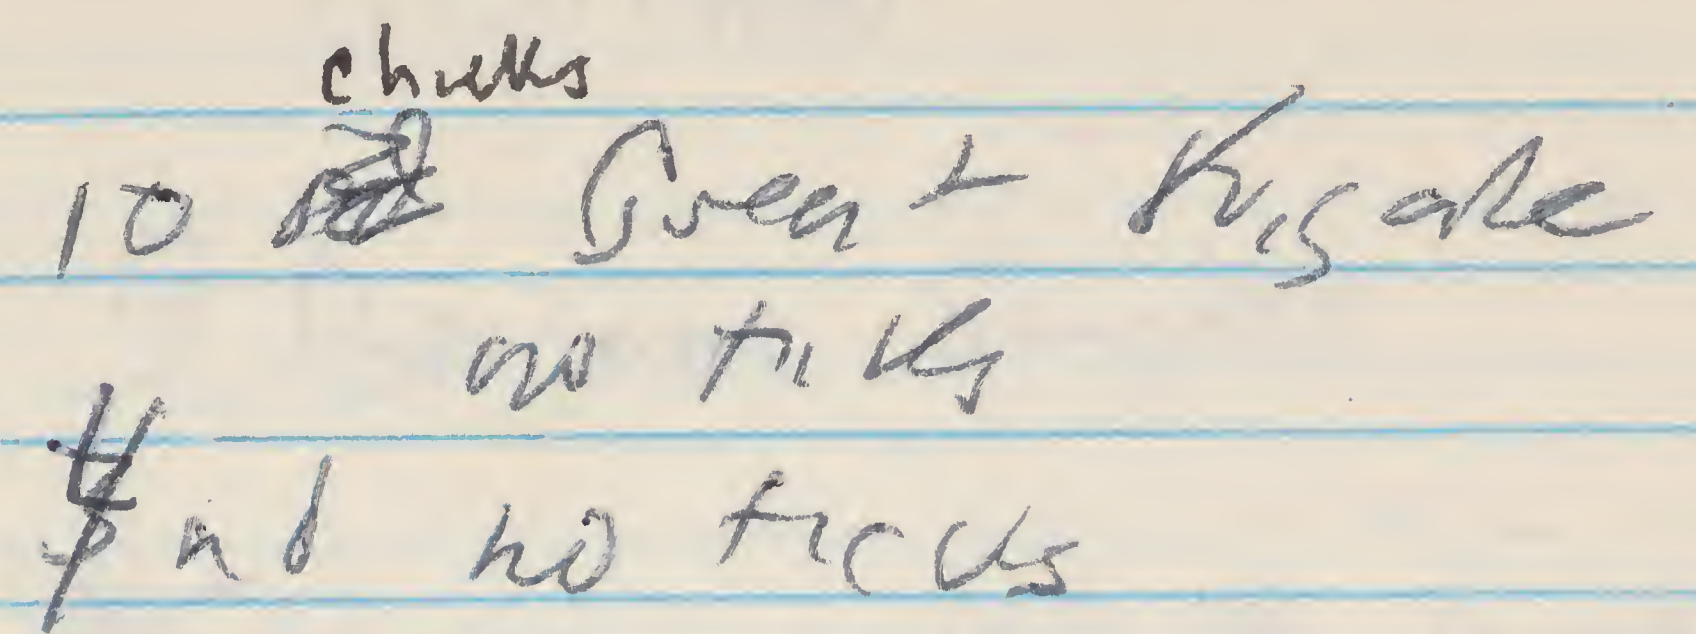 chicks
10 Great Frigate
no ticks
4 nd no ticks